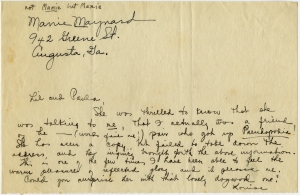 not Mamie but Marie
Marie Maynard
942 Greene St.
Augusta, Ga.
Lil and Paulia:
She was thrilled to know that she
was talking to me, that I actually was a friend
to the — (under five us) pair who got up Paulispokia.
She has seen a copy, but failed to take down the
address and her inquiry brought forth the above information.
This is one of the few times I have been able to feel the
warm pleasure of reflected glory and it pleases me.
Could you surprise her with that lovely dogwood one?
Louise